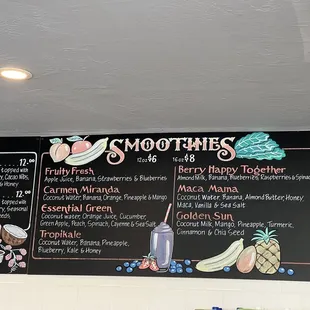 SMOOTHIES
12oz $6 16oz $8
Fruity Fresh
Apple Juice, Banana, Strawberries & Blueberries
Carmen Miranda
Coconut Water, Banana, Orange, Pineapple & Mango
Essential Green
Coconut water, Orange Juice, Cucumber,
Green Apple, Peach, Spinach, Cayenne & Sea Salt
Tropikale
Coconut Water, Banana, Pineapple,
Blueberry, Kale & Honey
Berry Happy Together
Almond Milk, Banana, Blueberries, Raspberries & Spinach
Maca Mama
Coconut Water, Banana, Almond Butter, Honey,
Maca, Vanilla & Sea Salt
Golden Sun
Coconut Milk, Mango, Pineapple, Turmeric,
Cinnamon & Chia Seed
12-
topped with
Cacao Nibs,
& Honey
12-
topped with
Seasonal
Seeds,
& Honey